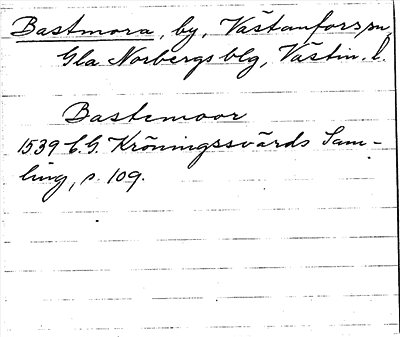 Bastmora, by, Västanfors sn,
Gla Norbergs blg, Västm. l.
Bastemoor
1539 C.G. Kröningssvärds Sam-
ling, s. 109.